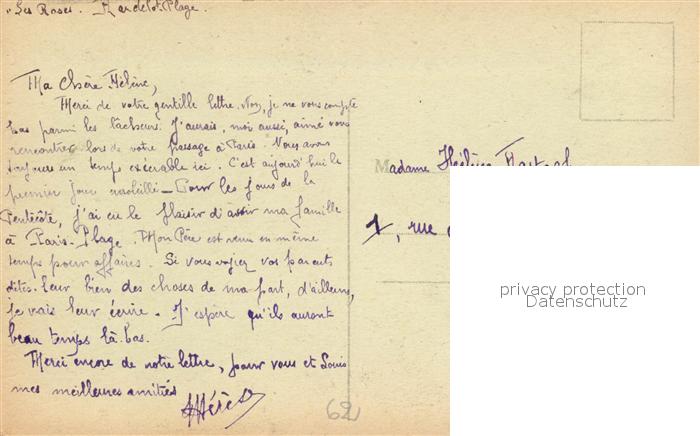 "Les Roses. R. de Tot. Plage.
Ma Chère Hélène,
Merci de votre gentille lettre. Non, je ne vous compte
pas parmi les lâcheurs. J'aurais, moi aussi, aimé vous
rencontrer lors de votre passage à Paris. Nous avons
toujours un temps exécrable ici. C'est aujourd'hui le
premier jour ensoleillé - Pour les jours de la
Pentecôte, j'ai eu le plaisir d'avoir ma famille
à Paris-Plage. Mon Père est venu en même
temps pour affaires. Si vous voyez vos parents
dites-leur bien des choses de ma part, d'ailleurs,
je vais leur écrire. J'espère qu'ils auront
beau temps là-bas.
Merci encore de votre lettre, pour vous et Louis
mes meilleures amitiés
Madame Hélène
1, rue
privacy protection
Datenschutz
62